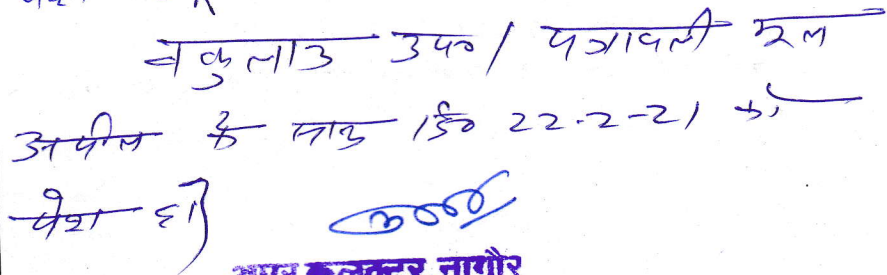 वकुलाउ उप० / पत्रावली मूल
अपील के साथ दि० 22-2-21 को
पेश हो
अपर कलक्टर नागौर